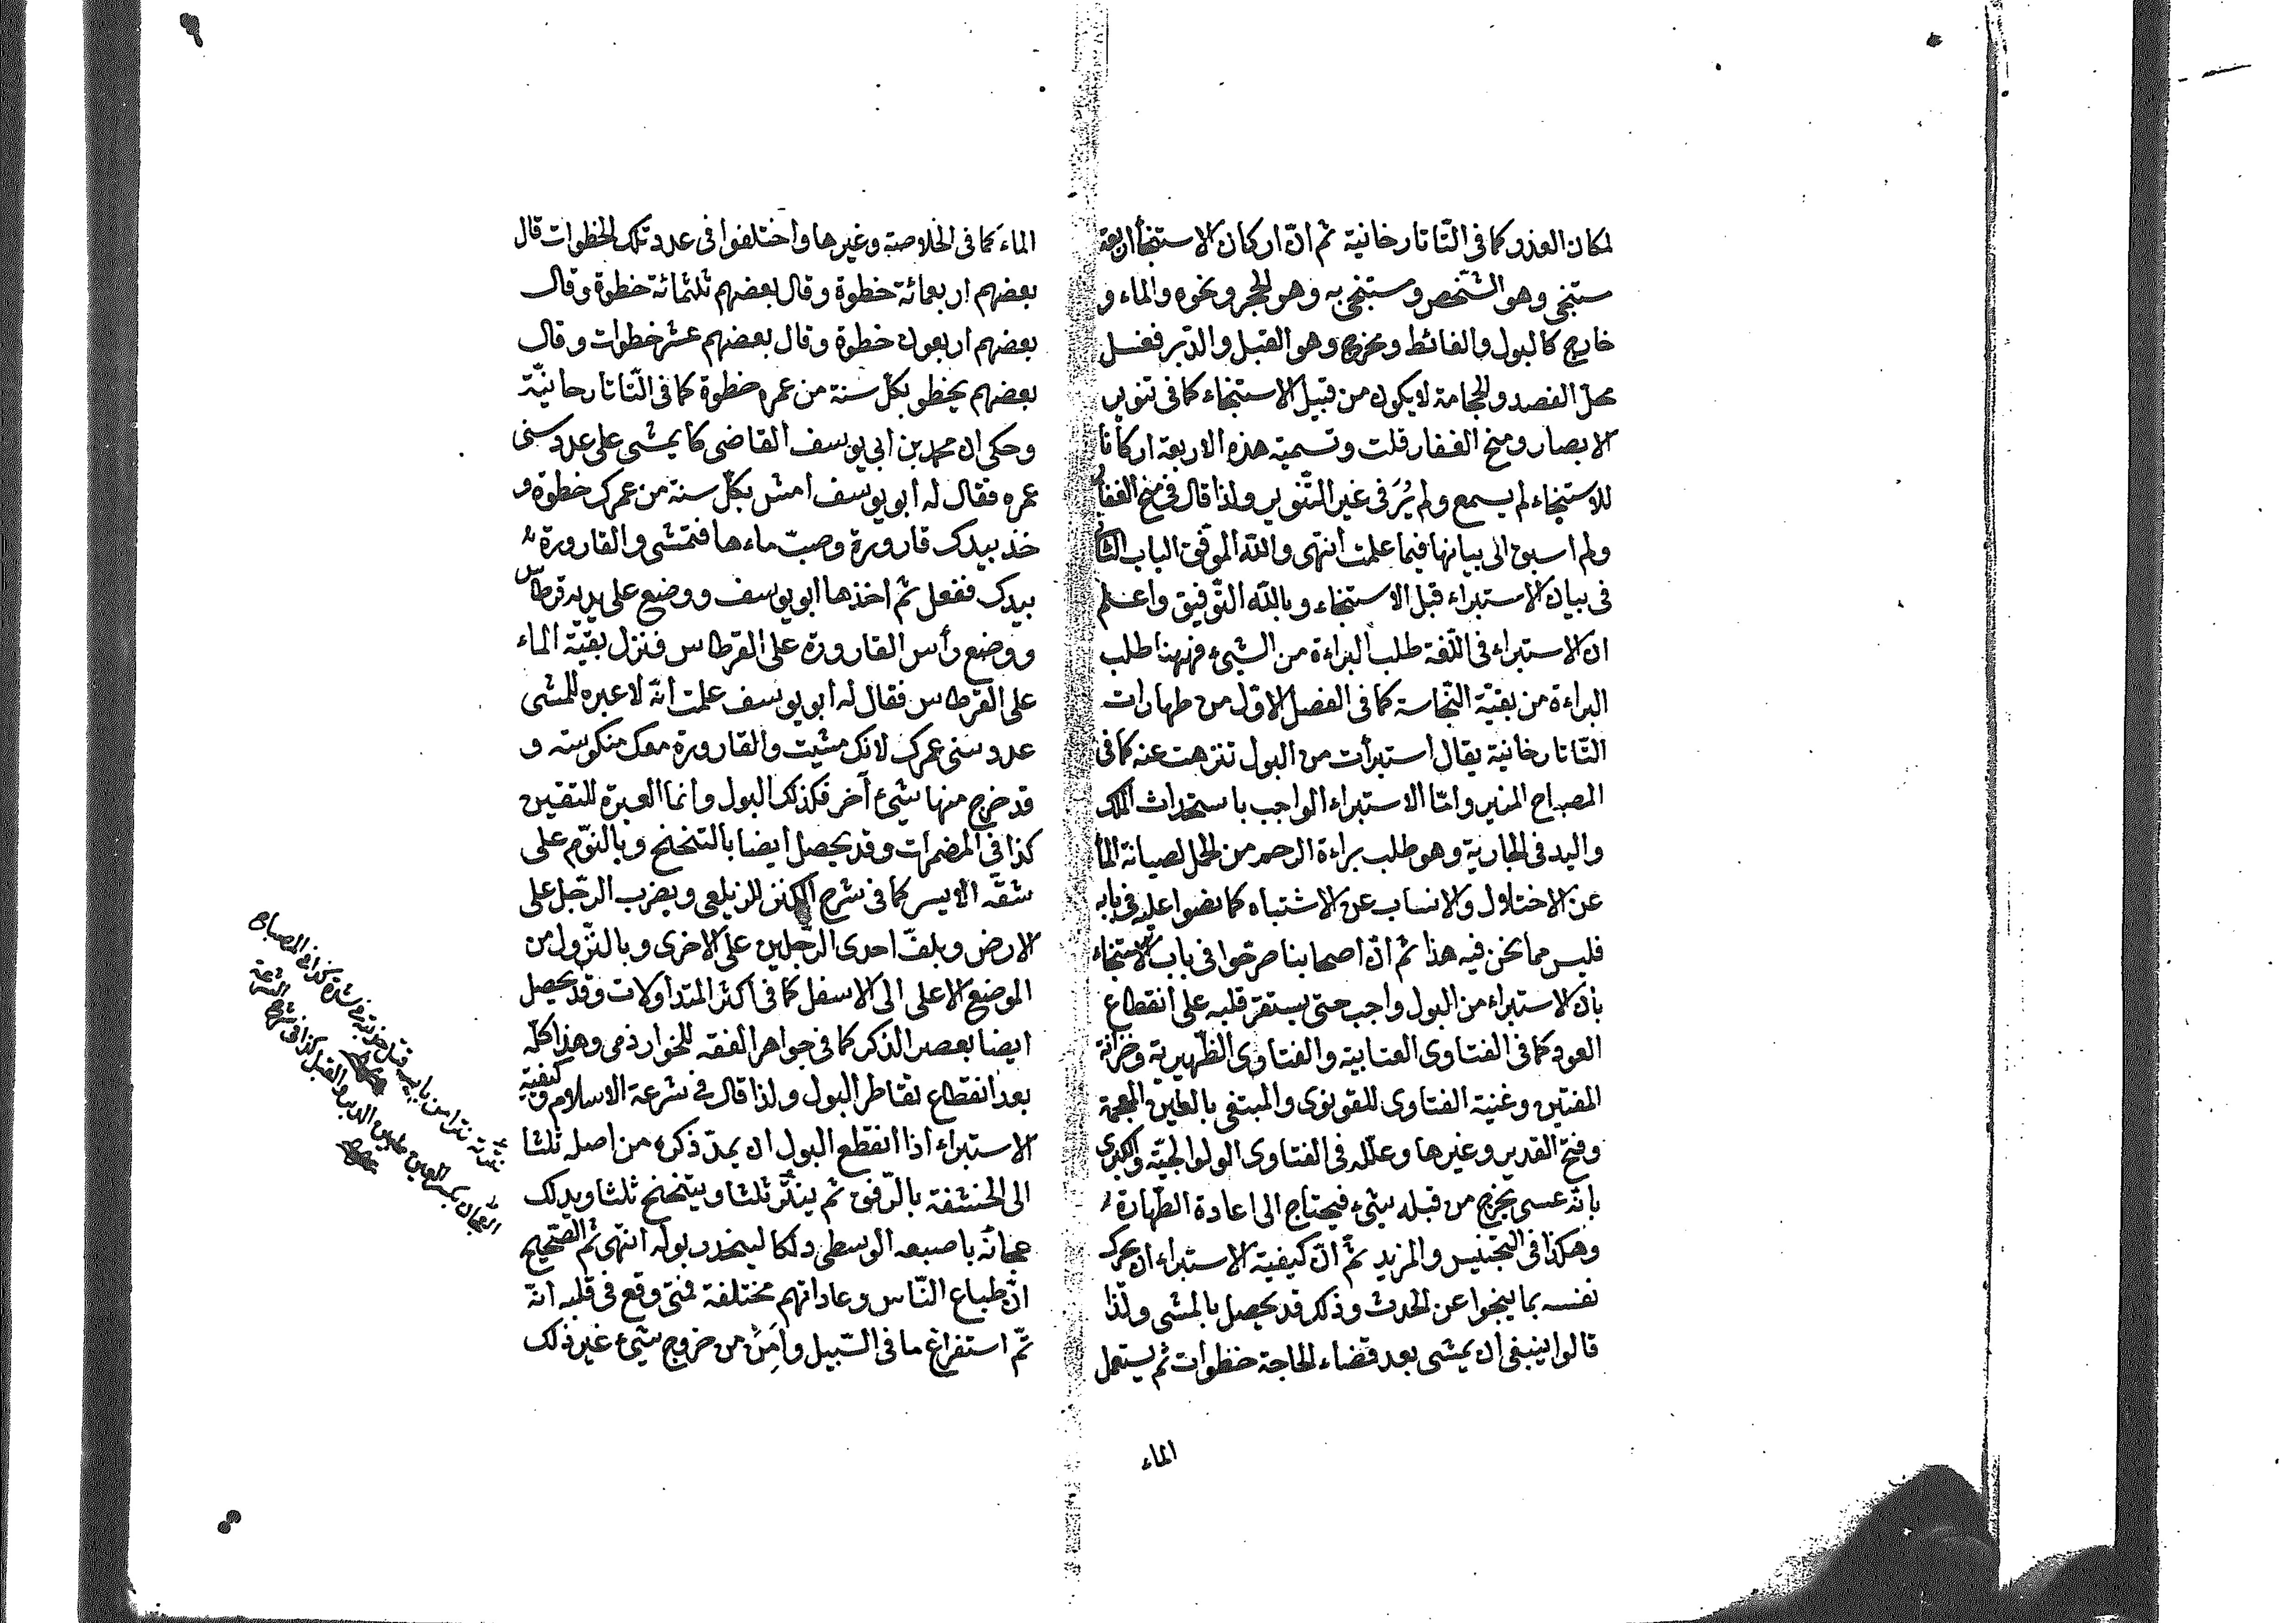 لمكان العذر كما فى التّاتارخانية ثم انّ اركان الاستنجأ اربعة
مستنجى وهو الشّخص ومستنجى به وهو الحجر ونحوه والماء و
خارج كالبول والغائط ومخرج وهو القبل والدّبر فغسل
محلّ الفصد والحجامة لا يكون من قبيل الاستنجاء كما فى تنوير
الابصار ومنح الغفار قلت وتسمية هذه الاربعة اركانا
للاستنجاء لم يسمع ولم يُرَ فى غير التّنوير ولذا قال فى منح الغفار
ولم اسبق الى بيانها فيما علمت انتهى واللّه الموفّق الباب الثانى
فى بيان الاستبراء قبل الاستنجاء وباللّه التّوفيق واعلم
ان الاستبراء فى اللّغة طلب البراءة من الشيئ فههنا طلب
البراءة من بقيّة النّجاسة كما فى الفصل الاوّل من طهارات
التّاتارخانية يقال استبرأت من البول تنزهت عنه كما فى
المصباح المنير وامّا الاستبراء الواجب باستحداث الملك
واليد فى الجارية وهو طلب براءة الرحم من الحمل لصيانة المأ
عن الاختلال والانساب عن الاشتباه كما نصوا عليه فى بابه
فليس مما نحن فيه هذا ثم انّ اصحابنا صرّحوا فى باب الاستنجاء
بأن الاستبراء من البول واجب حتى يستقرّ قلبه على انقطاع
العود كما فى الفتاوى العتابية والفتاوى الظّهيرية وخزانة
المفتين وغنية الفتاوى للقونوى والمبتغى بالغين المعجمة
وفتح القدير وغيرها وعلّله فى الفتاوى الولوالجيّة والكبرى
بانّه عسى يخرج من قبله شيئ فيحتاج الى اعادة الطّهارة
وهكذا فى التّجنيس والمزيد ثمّ انّ كيفية الاستبراء ان يحرك
نفسه بما ينجوا عن الحدث وذلك قد يحصل بالمشى ولذا
قالوا ينبغى ان يمشى بعد قضاء الحاجة خطوات ثم يستعمل
الماء
الماء كما فى الخلاصة وغيرها واختلفوا فى عدد تلك الخطوات قال
بعضهم اربعمائة خطوة وقال بعضهم ثلثمائة خطوة وقال
بعضهم اربعون خطوة وقال بعضهم عشر خطوات وقال
بعضهم يخطو بكلّ سنة من عمره خطوة كما فى التّاتارحانيّة
وحكى ان محمد بن ابى يوسف القاضى كا يمشى على عدد سنى
عمره فقال له ابو يوسف امش بكلّ سنة من عمرك خطوة و
خذ بيدك قارورة وصبّ ماءها فتمشى والقارورة
بيدك ففعل ثمّ اخذها ابو يوسف ووضع على يديه قرطاس
ووضع رأس القارورة على القرطاس فنزل بقيّة الماء
على القرطاس فقال له ابو يوسف علمت انّه لا عبره للمشى
عدد سنى عمرك لانك مشيت والقارورة معك منكوسته و
قد خرج منها شيئ آخر فكذلك البول وانما العبرة للتقين
كذا فى المضمرات وقد يحصل ايضا بالتنحنح وبالنّوم على
شقّه الايسر كما فى شرح الكنز للزيلعى وبضرب الرّجل على
الارض وبلفّ احدى الرّجلين على الاخرى وبالنّزول من
الموضع الاعلى الى الاسفل كما فى اكثر المتداولات وقد يحصل
ايضا بعصر الذكر كما فى جواهر الفقه للخوارذمى وهذا كلّه
بعد انقطاع تقاطر البول ولذا قال فى شرعة الاسلام وكيفية
الاستبراء اذا انقطع البول ان يمدّ ذكره من اصله ثلثا
الى الحنشفة بالرّفق ثم ينثر ثلثا ويتنحنح ثلثا ويدلك
عجانه باصبعه الوسطى دلكا لينحدر بوله انتهى ثم الصّحيح
انّ طباع النّاس وعاداتهم مختلفة فمتى وقع فى قلبه انّه
تمّ استفراغ ما فى السّبيل واَمِنَ من خروج شيئ غير ذلك
نثرته نثرا من باب قتل كذا فى المصباح
العجان بكسر العين ما بين الدبر والقبل كذا فى شرح الشرعة